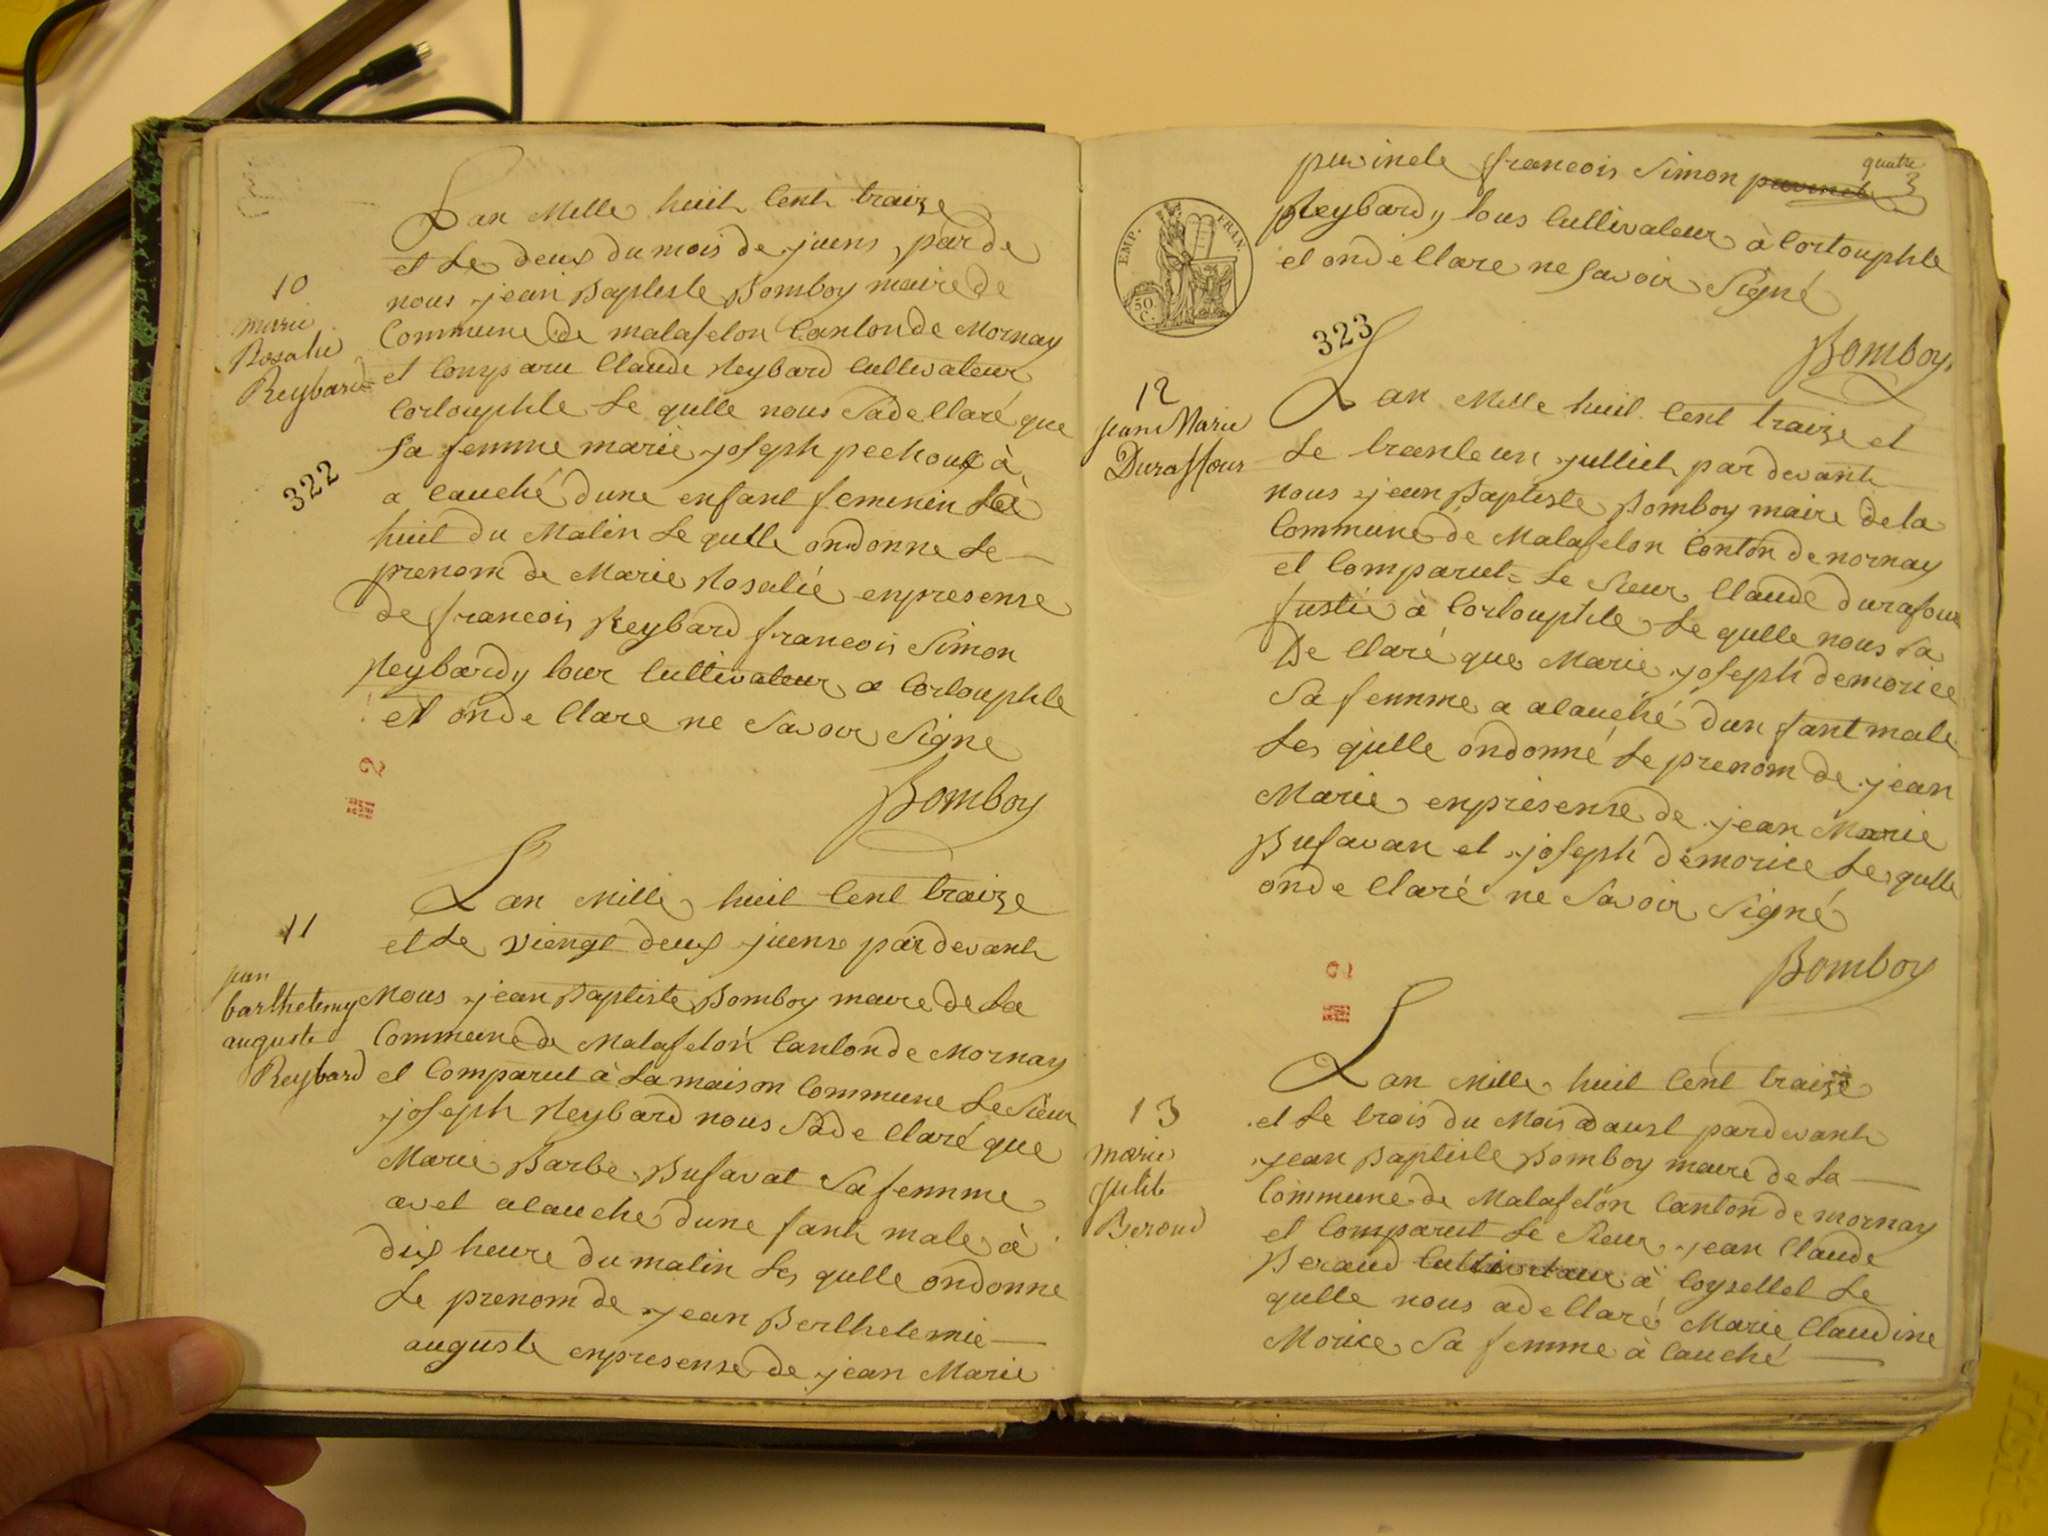 10
marie
Rosalie
Reybard
322
Lan Mille huit Cent traize
et Le deux du mois de juens par de
nous jean Baptiste Bomboy maire de
Commune de malafelon Canton de Mornay
et Comparu Claude Reybard Cultivateur
Corlouphle Le qulle nous Sade Claré que
Sa femme marie joseph pechoux à
a Cauché dune enfant feminin Le
huit du Matin Le qulle ondonne Le
prenom de Marie Rosalie enpresense
de francois Reybard francois Simon
Reybardy tour Cultivateur a Corlouphle
et onde Clare ne Savoir Signe
Bomboy
11
jean
barthelemy
auguste
Reybard
Lan Mille huit Cent traize
et Le viengt deux juens pardevant
Nous jean Baptiste Bomboy maire de La
Commune de Malafelon Canton de Mornay
et Comparut à La maison Commune Le Sieur
joseph Reybard nous Sade Claré que
Marie Barbe Bufavat Sa femme
avet alauche dune fant male à
dix heure du matin Les qulle ondonne
Le prenom de jean Berthelemie
auguste enpresense de jean Marie
quatre
3
francois Simon
Reybardy tous Cultivateur à Corlouphle
et onde Clare ne Savoir Signé
Bomboy
EMP. FRAN.
50 C.
323
12
jean Marie
Duraffour
Lan Mille huit Cent traize et
Le tranteun julliet pardevant
nous jean Baptiste Bomboy maire de la
Commune de Malafelon Conton de nornay
et Comparut Le Sieur Claude durafour
fustie à Corlouphle Le qulle nous Sa
De Claré que Marie joseph demorice
Sa femme a alauché dun fant male
Les qulle ondonné Le prenom de jean
Marie enpresense de jean Marie
Bufavan et joseph demorice Les qulle
onde Claré ne Savoir Signé
Bomboy
13
marie
Beroud
Lan Mille huit Cent traize
et Le trois du Mois daust pardevant
jean Baptiste Bomboy maire de La
Commune de Malafelon Canton de mornay
et Comparut Le Sieur jean Claude
Beraud à Coysellet Le
qulle nous ade Claré Marie Claudine
Morice Sa femme à Cauché